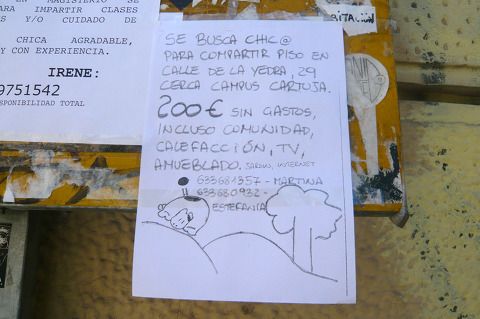 PARA IMPARTIR CLASES
Y/O CUIDADO DE
CHICA AGRADABLE,
Y CON EXPERIENCIA.
IRENE:
9751542
DISPONIBILIDAD TOTAL
SE BUSCA CHIC@
PARA COMPARTIR PISO EN
CALLE DE LA YEDRA, 29
CERCA CAMPUS CARTUJA.
200€ SIN GASTOS,
INCLUSO COMUNIDAD,
CALEFACCIÓN, TV,
AMUEBLADO. JARDIN, INTERNET
633681357 - MARTINA
633680932 -
ESTEFANIA